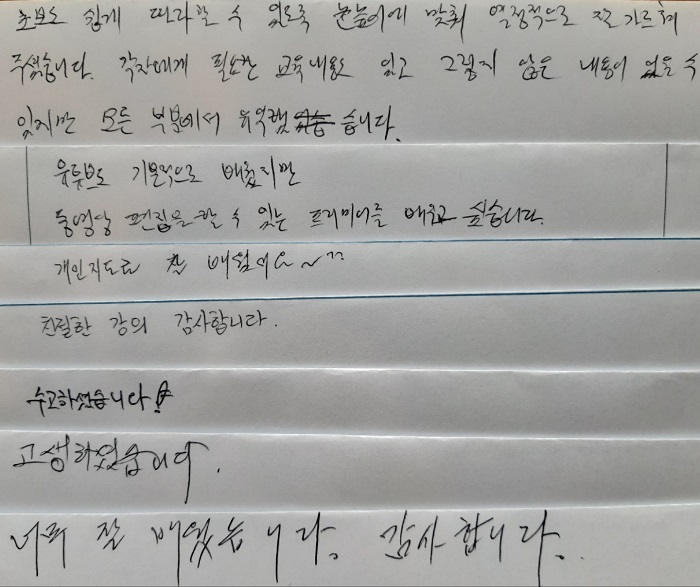 초보도 쉽게 따라할 수 있도록 눈높이에 맞춰 열정적으로 잘 가르쳐
주셨습니다. 각자에게 필요한 교육내용도 있고 그렇지 않은 내용이 있을 수
있지만 모든 부분에서 유익했습니다.
유튜브도 기본적으로 배웠지만
동영상 편집을 할 수 있는 프리미어를 배우고 싶습니다.
개인지도로 잘 배웠어요~^^
친절한 강의 감사합니다.
수고하셨습니다!
고생하였습니다.
너무 잘 배웠습니다. 감사합니다..